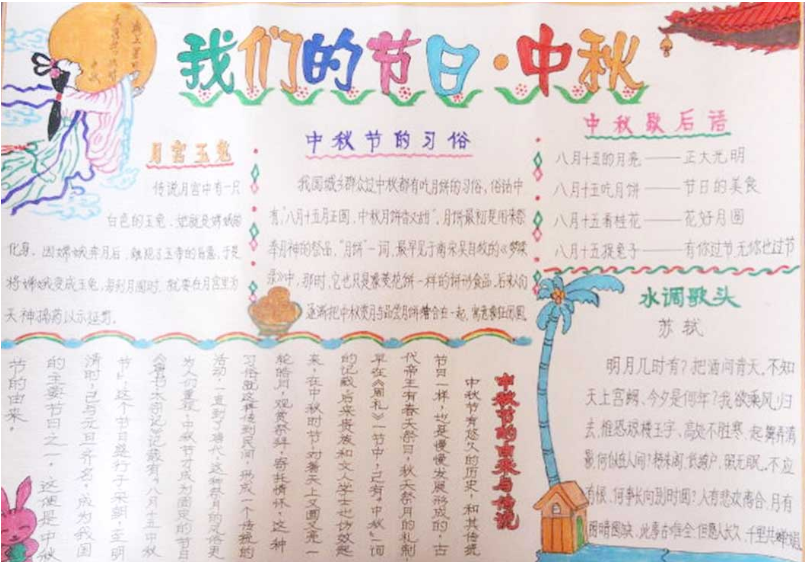 我们的节日·中秋
海上生明月
天涯共
中秋
月宫玉兔
传说月宫中有一只
白色的玉兔，她就是嫦娥的
化身。因嫦娥奔月后，触犯了玉帝的旨意，于是
将嫦娥变成玉兔，每到月圆时，就要在月宫里为
天神捣药以示惩罚。
中秋节的习俗
我国城乡群众过中秋都有吃月饼的习俗，俗话中
有"八月十五月正圆，中秋月饼香又甜"。月饼最初是用来祭
奉月神的祭品，"月饼"一词，最早见于南宋吴自牧的《梦粱
录》中，那时，它也只是像菱花饼一样的饼形食品。后来人们
逐渐把中秋赏月与品尝月饼结合在一起，寓意家人团圆。
中秋歇后语
八月十五的月亮——正大光明
八月十五吃月饼——节日的美食
八月十五看桂花——花好月圆
八月十五捉兔子——有你过节无你也过节
水调歌头
苏轼
明月几时有？把酒问青天。不知
天上宫阙，今夕是何年？我欲乘风归
去，惟恐琼楼玉宇，高处不胜寒。起舞弄清
影，何似在人间？转朱阁，低绮户，照无眠。不应
有恨，何事长向别时圆？人有悲欢离合，月有
阴晴圆缺，此事古难全。但愿人长久，千里共婵娟。
中秋节的由来与传说
中秋节有悠久的历史，和其传统
节日一样，也是慢慢发展形成的，古
代帝王有春天祭日，秋天祭月的礼制，
早在《周礼》一书中，已有"中秋"一词
的记载。后来贵族和文人学士也仿效起
来，在中秋时节，对着天上又圆又亮一
轮皓月，观赏祭拜，寄托情怀，这种
习俗就这样传到民间，形成一个传统的
活动，一直到了唐代，这种祭月的风俗更
为人们重视，中秋节才成为固定的节日
《唐书·太宗记》记载有"八月十五中秋
节"，这个节日盛行于宋朝，至明
清时，已与元旦齐名，成为我国
的主要节日之一。这便是中秋
节的由来。